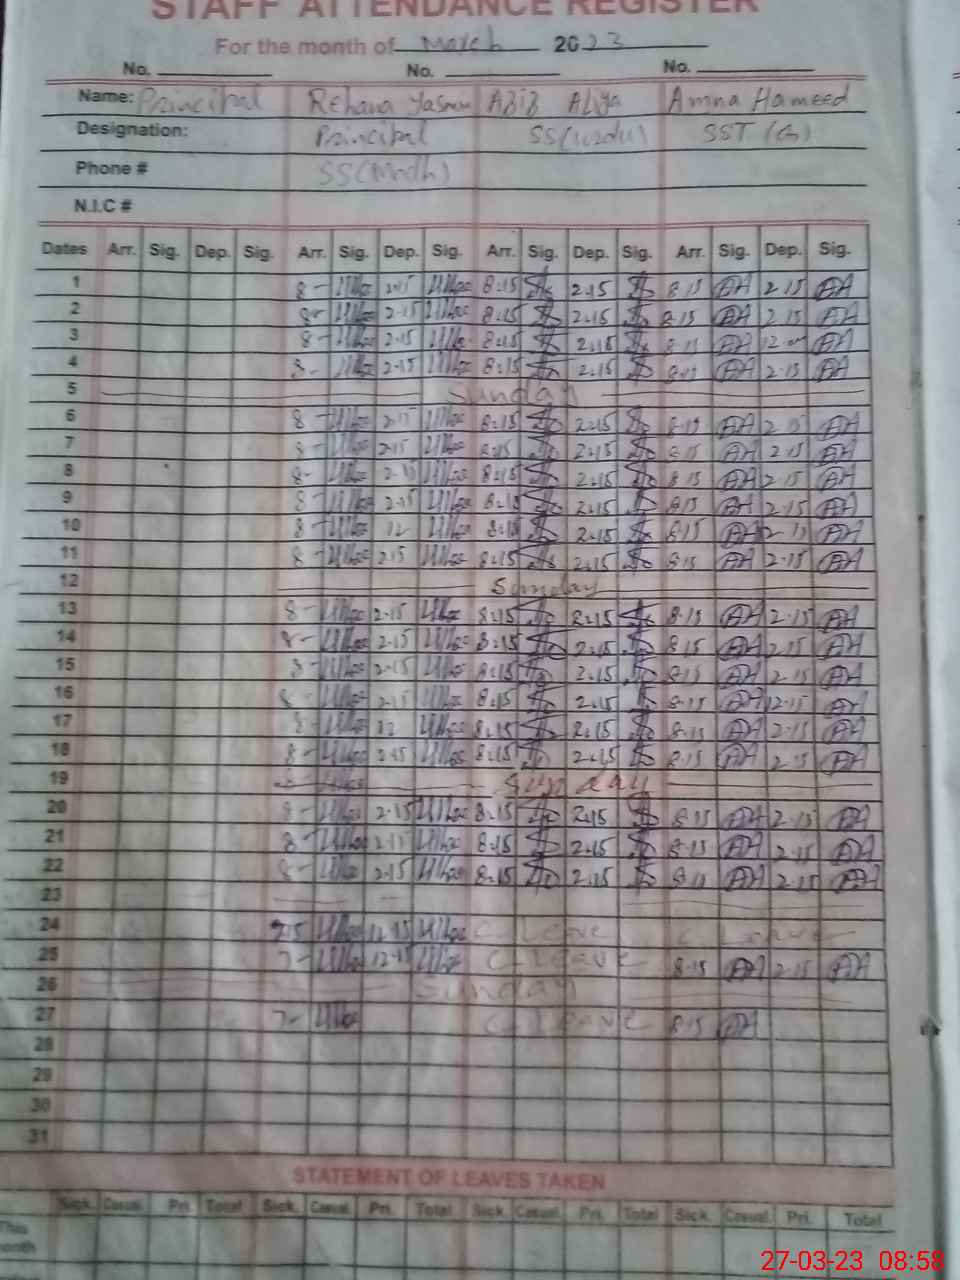 STAFF ATTENDANCE REGISTER
For the month of March 2023
No. No. No.
Name: Principal Rehana Yasmin Aziz Aliya Amna Hameed
Designation: Principal SS(Urdu) SST (G)
Phone # SS(Math)
N.I.C #
Dates Arr. Sig. Dep. Sig. Arr. Sig. Dep. Sig. Arr. Sig. Dep. Sig. Arr. Sig. Dep. Sig.
1 8- 2.15 8:15 2.15 8.15 AH 2.15 AH
2 8- 2.15 8:15 2.15 8.15 AH 2.15 AH
3 8- 2.15 8:15 2.15 8.15 AH 12 AH
4 8- 2.15 8:15 2.15 8.15 AH 2.15 AH
5 Sunday
6 8- 2.15 8:15 2.15 8.15 AH 2.15 AH
7 8- 2.15 8:15 2.15 8.15 AH 2.15 AH
8 8- 2.15 8:15 2.15 8.15 AH 2.15 AH
9 8- 2.15 8:15 2.15 8.15 AH 2.15 AH
10 8- 12 8:15 2.15 8.15 AH 2.15 AH
11 8- 2.15 8:15 2.15 8.15 AH 2.15 AH
12 Sunday
13 8- 2.15 8:15 2.15 8.15 AH 2.15 AH
14 8- 2.15 8:15 2.15 8.15 AH 2.15 AH
15 8- 2.15 8:15 2.15 8.15 AH 2.15 AH
16 8- 2.15 8.15 2.15 8.15 AH 12.15 AH
17 8- 12 8.15 2.15 8.15 AH 2.15 AH
18 8- 2.15 8:15 2.15 8.15 AH 2.15 AH
19 Sunday
20 8- 2.15 8.15 2.15 8.15 AH 2.15 AH
21 8- 2.15 8.15 2.15 8.15 AH 2.15 AH
22 8- 2.15 8.15 2.15 8.15 AH 2.15 AH
23
24 12.15 C Leave C Leave
25 7- 12.15 C Leave 8.15 AH 2.15 AH
26 Sunday
27 7- C Leave 8.15 AH
28
29
30
31
STATEMENT OF LEAVES TAKEN
Sick. Casual. Pri. Total Sick. Casual. Pri. Total Sick. Casual. Pri. Total Sick. Casual. Pri. Total
This
month
27-03-23 08:58